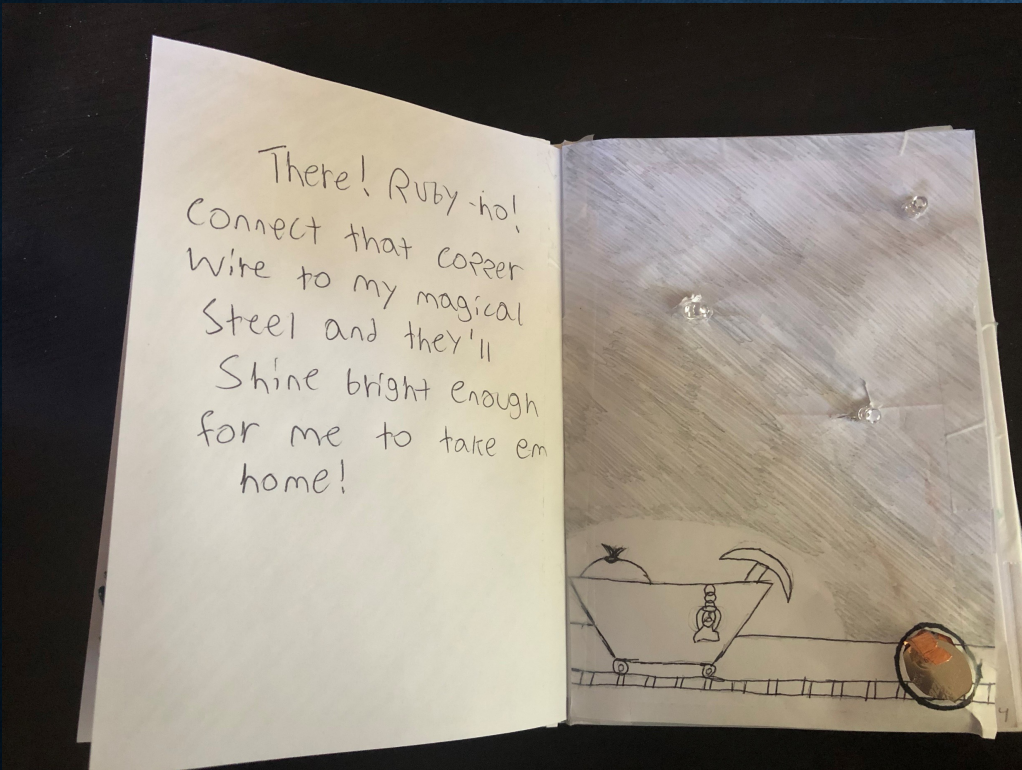 There! Ruby-ho!
Connect that copper
Wire to my magical
Steel and they'll
Shine bright enough
for me to take em
home!
4